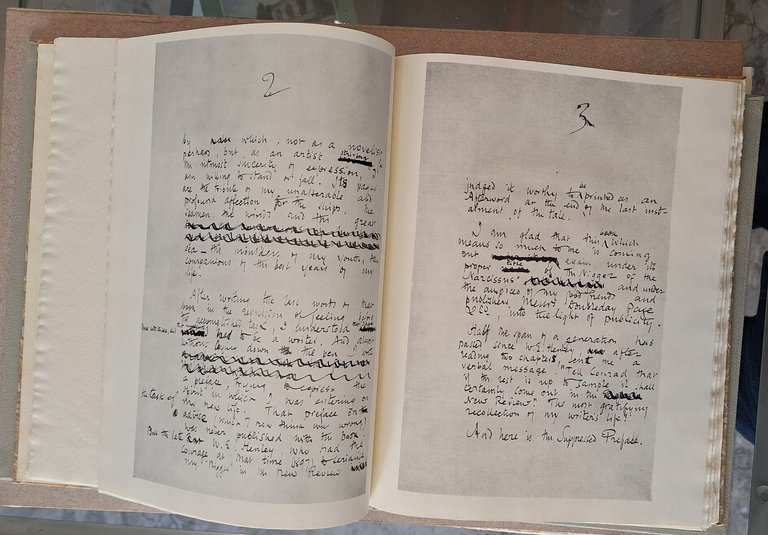 2
by which, not as a novelist
perhaps, but as an artist striving for
the utmost sincerity of expression, I
am willing to stand or fall. Its pages
are the tribute of my unalterable and
profound affection for the ships, the
seamen, the winds and the great
sea — the moulders of my youth, the
companions of the best years of my
life.
After writing the last words of that
book, in the revulsion of feeling before
the accomplished task, I understood
that I had done with the sea, and that
had to be a writer. And almost
without laying down the pen I wrote
a preface, trying to express the
spirit in which I was entering on
the task of my new life. That preface on
advice (which I now think was wrong)
was never published with the book.
But the late W. E. Henley who had the
courage at that time (1897) to serialize
my "Nigger" in the New Review
3
judged it worthy to be printed as an
Afterword at the end of the last inst-
alment of the tale.
I am glad that this book which
means so much to me is coming
out again, under its
proper title of "The Nigger of the
Narcissus" and under
the auspices of my good friends and
publishers Messrs Doubleday, Page
& Co, into the light of publicity.
Half the span of a generation has
passed since W. E. Henley, after
reading two chapters, sent me a
verbal message: "Tell Conrad that
if the rest is up to sample it shall
certainly come out in the
New Review." The most gratifying
recollection of my writer's life!
And here is the Suppressed Preface.